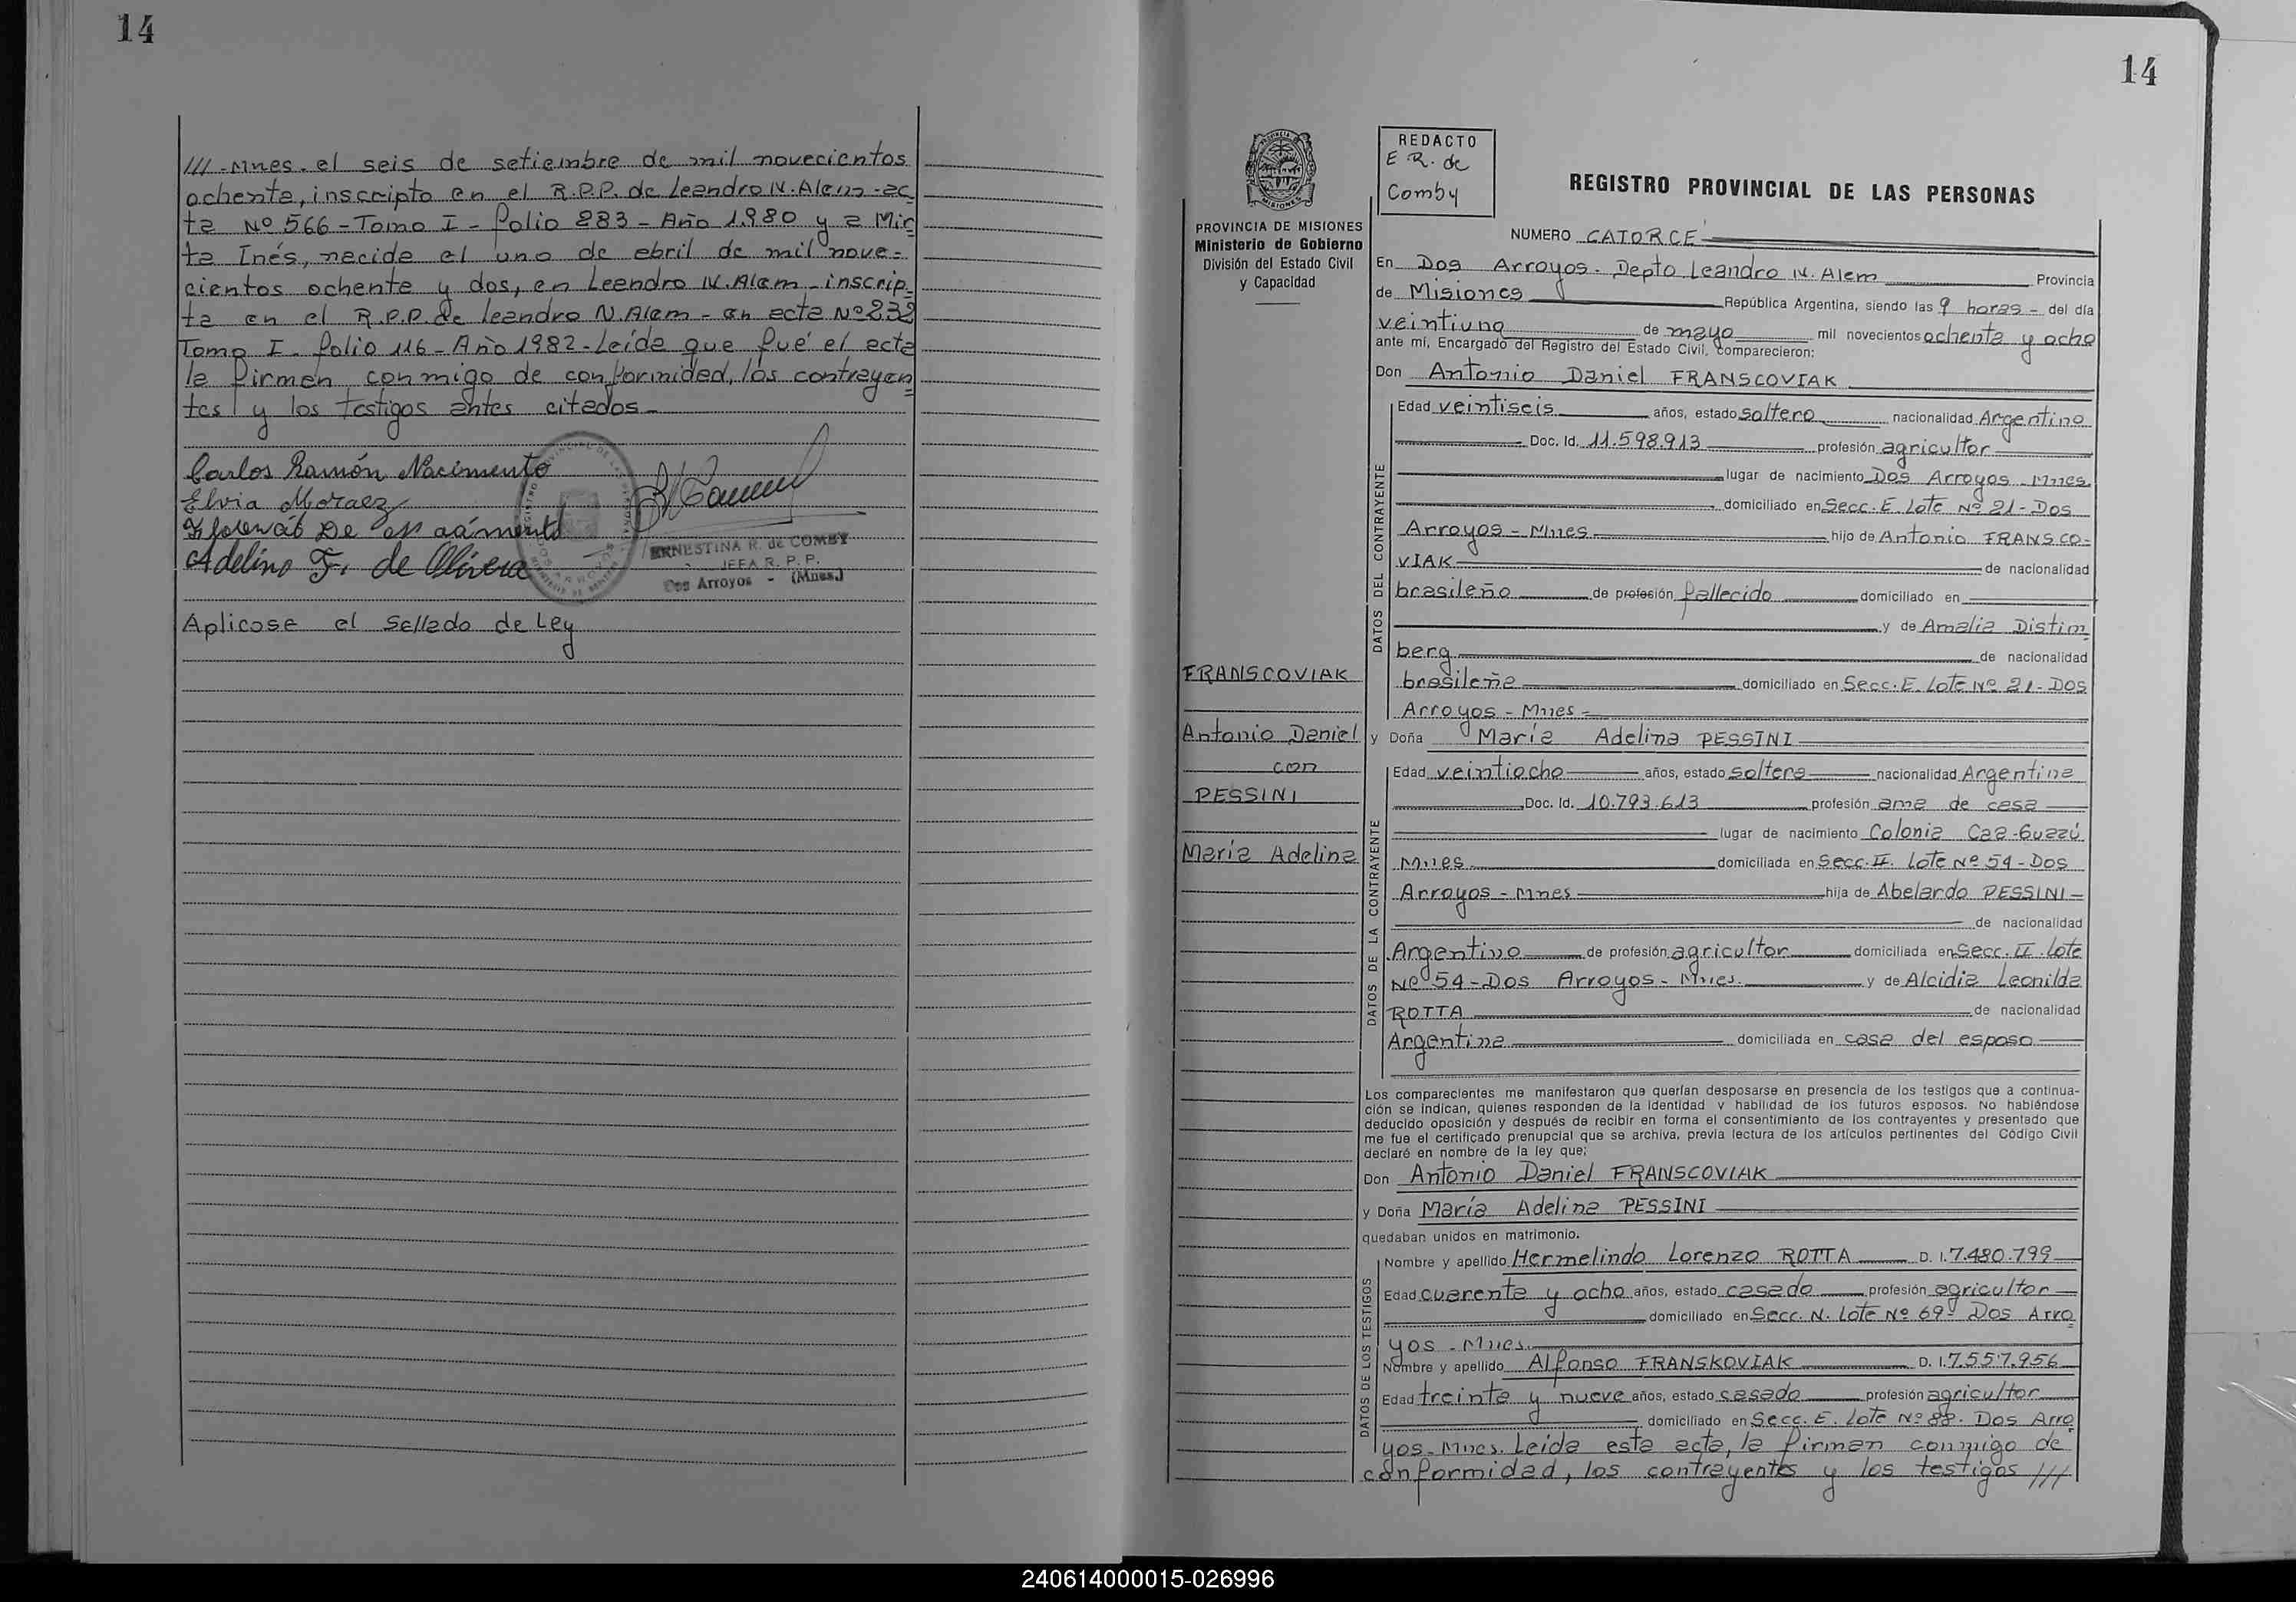 14
///-Mnes. el seis de setiembre de mil novecientos
ochenta, inscripto en el R.P.P. de Leandro N. Alem-ac
ta Nº 566-Tomo I-folio 283-Año 1980 y a Mir
ta Inés, nacida el uno de abril de mil nove-
cientos ochenta y dos, en Leandro N. Alem-inscrip-
ta en el R.P.P. de Leandro N. Alem-en acta Nº 232
Tomo I-folio 116-Año 1982-Leída que fué el acta
la firman conmigo de conformidad, los contrayen
tes y los testigos antes citados-
Carlos Ramón Nacimento
Elvia Moraez
De
Adelino F. de Olivera
ERNESTINA R. de COMBY
JEFA R. P. P.
Dos Arroyos - (Mnes.)
Aplicose el Sellado de Ley
14
PROVINCIA DE MISIONES
Ministerio de Gobierno
División del Estado Civil
y Capacidad
REDACTO
E R. de
Comby
REGISTRO PROVINCIAL DE LAS PERSONAS
NUMERO CATORCE
En Dos Arroyos-Depto Leandro N. Alem Provincia
de Misiones República Argentina, siendo las 9 horas - del día
veintiuno de mayo mil novecientos ochenta y ocho
ante mí, Encargado del Registro del Estado Civil, comparecieron:
Don Antonio Daniel FRANSCOVIAK
DATOS DEL CONTRAYENTE
Edad veintiseis años, estado soltero nacionalidad Argentino
Doc. Id. 11.598.913 profesión agricultor
lugar de nacimiento Dos Arroyos-Mnes.
domiciliado en Secc. E. Lote Nº 21-Dos
Arroyos-Mnes hijo de Antonio FRANSCO-
VIAK de nacionalidad
brasileño de profesión fallecido domiciliado en
y de Amalia Distim
berg de nacionalidad
brasileña domiciliado en Secc. E. Lote Nº 21-Dos
Arroyos-Mnes-
FRANSCOVIAK
Antonio Daniel
con
PESSINI
María Adelina
y Doña María Adelina PESSINI
DATOS DE LA CONTRAYENTE
Edad veintiocho años, estado soltera nacionalidad Argentina
Doc. Id. 10.793.613 profesión ama de casa
lugar de nacimiento Colonia Caa-Guazú
Mnes domiciliada en Secc. II. Lote Nº 54-Dos
Arroyos-Mnes hija de Abelardo PESSINI-
de nacionalidad
Argentino de profesión agricultor domiciliada en Secc. II. Lote
Nº 54-Dos Arroyos-Mnes. y de Alcidia Leonilda
ROTTA de nacionalidad
Argentina domiciliada en casa del esposo
Los comparecientes me manifestaron que querían desposarse en presencia de los testigos que a continua-
ción se indican, quienes responden de la identidad y habilidad de los futuros esposos. No habiéndose
deducido oposición y después de recibir en forma el consentimiento de los contrayentes y presentado que
me fue el certificado prenupcial que se archiva, previa lectura de los artículos pertinentes del Código Civil
declaré en nombre de la ley que;
Don Antonio Daniel FRANSCOVIAK
y Doña María Adelina PESSINI
quedaban unidos en matrimonio.
DATOS DE LOS TESTIGOS
Nombre y apellido Hermelindo Lorenzo ROTTA D. I. 7.480.799
Edad cuarenta y ocho años, estado casado profesión agricultor
domiciliado en Secc. N. Lote Nº 69-Dos Arro
yos-Mnes.
Nombre y apellido Alfonso FRANSKOVIAK D. I. 7.557.956
Edad treinta y nueve años, estado casado profesión agricultor
domiciliado en Secc. E. Lote Nº 88. Dos Arro
yos-Mnes. Leída esta acta, la firman conmigo de
conformidad, los contrayentes y los testigos ///
240614000015-026996